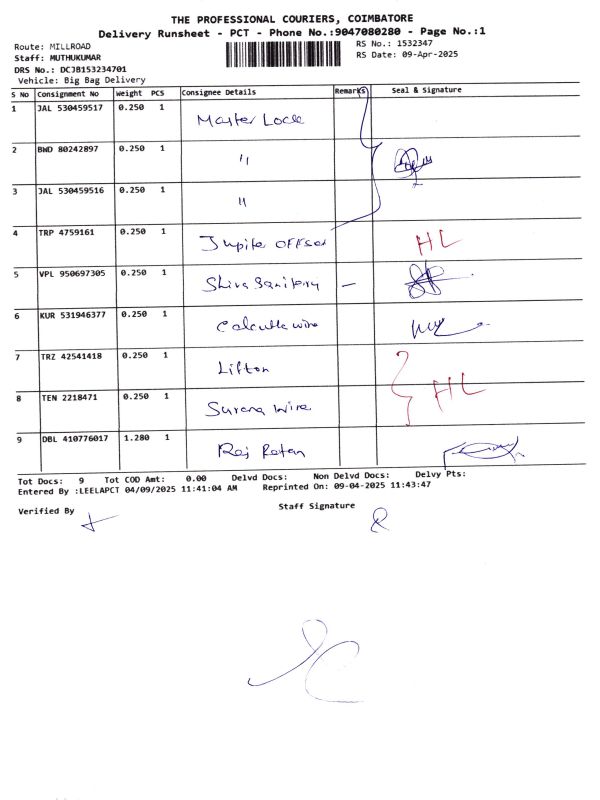 THE PROFESSIONAL COURIERS, COIMBATORE
Delivery Runsheet - PCT - Phone No.:9047080280 - Page No.:1
Route: MILLROAD
RS No.: 1532347
Staff: MUTHUKUMAR
RS Date: 09-Apr-2025
DRS No.: DCJB153234701
Vehicle: Big Bag Delivery
S No Consignment No Weight PCS Consignee Details Remarks Seal & Signature
1 JAL 530459517 0.250 1 Master Lock
2 BWD 80242897 0.250 1 "
3 JAL 530459516 0.250 1 "
4 TRP 4759161 0.250 1 Jupite offset HL
5 VPL 950697305 0.250 1 Shiva Sanitary -
6 KUR 531946377 0.250 1 Calcutta wire
7 TRZ 42541418 0.250 1 Lifton
8 TEN 2218471 0.250 1 Surana wire HL
9 DBL 410776017 1.280 1 Raj Ratan
Tot Docs: 9 Tot COD Amt: 0.00 Delvd Docs: Non Delvd Docs: Delvy Pts:
Entered By :LEELAPCT 04/09/2025 11:41:04 AM Reprinted On: 09-04-2025 11:43:47
Verified By Staff Signature